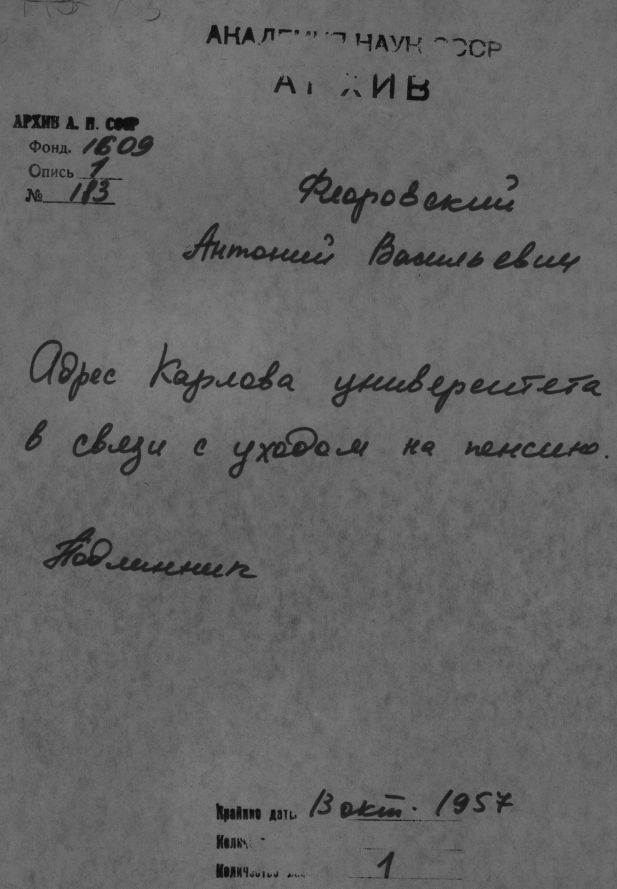 АКАДЕМИЯ НАУК СССР
АРХИВ
АРХИВ А. Н. СССР
Фонд. 1609
Опись 1
№ 183
Флоровский
Антоний Васильевич
Адрес Карлова университета
в связи с уходом на пенсию.
Подлинник
Крайние даты 13 окт. 1957
Количество
1